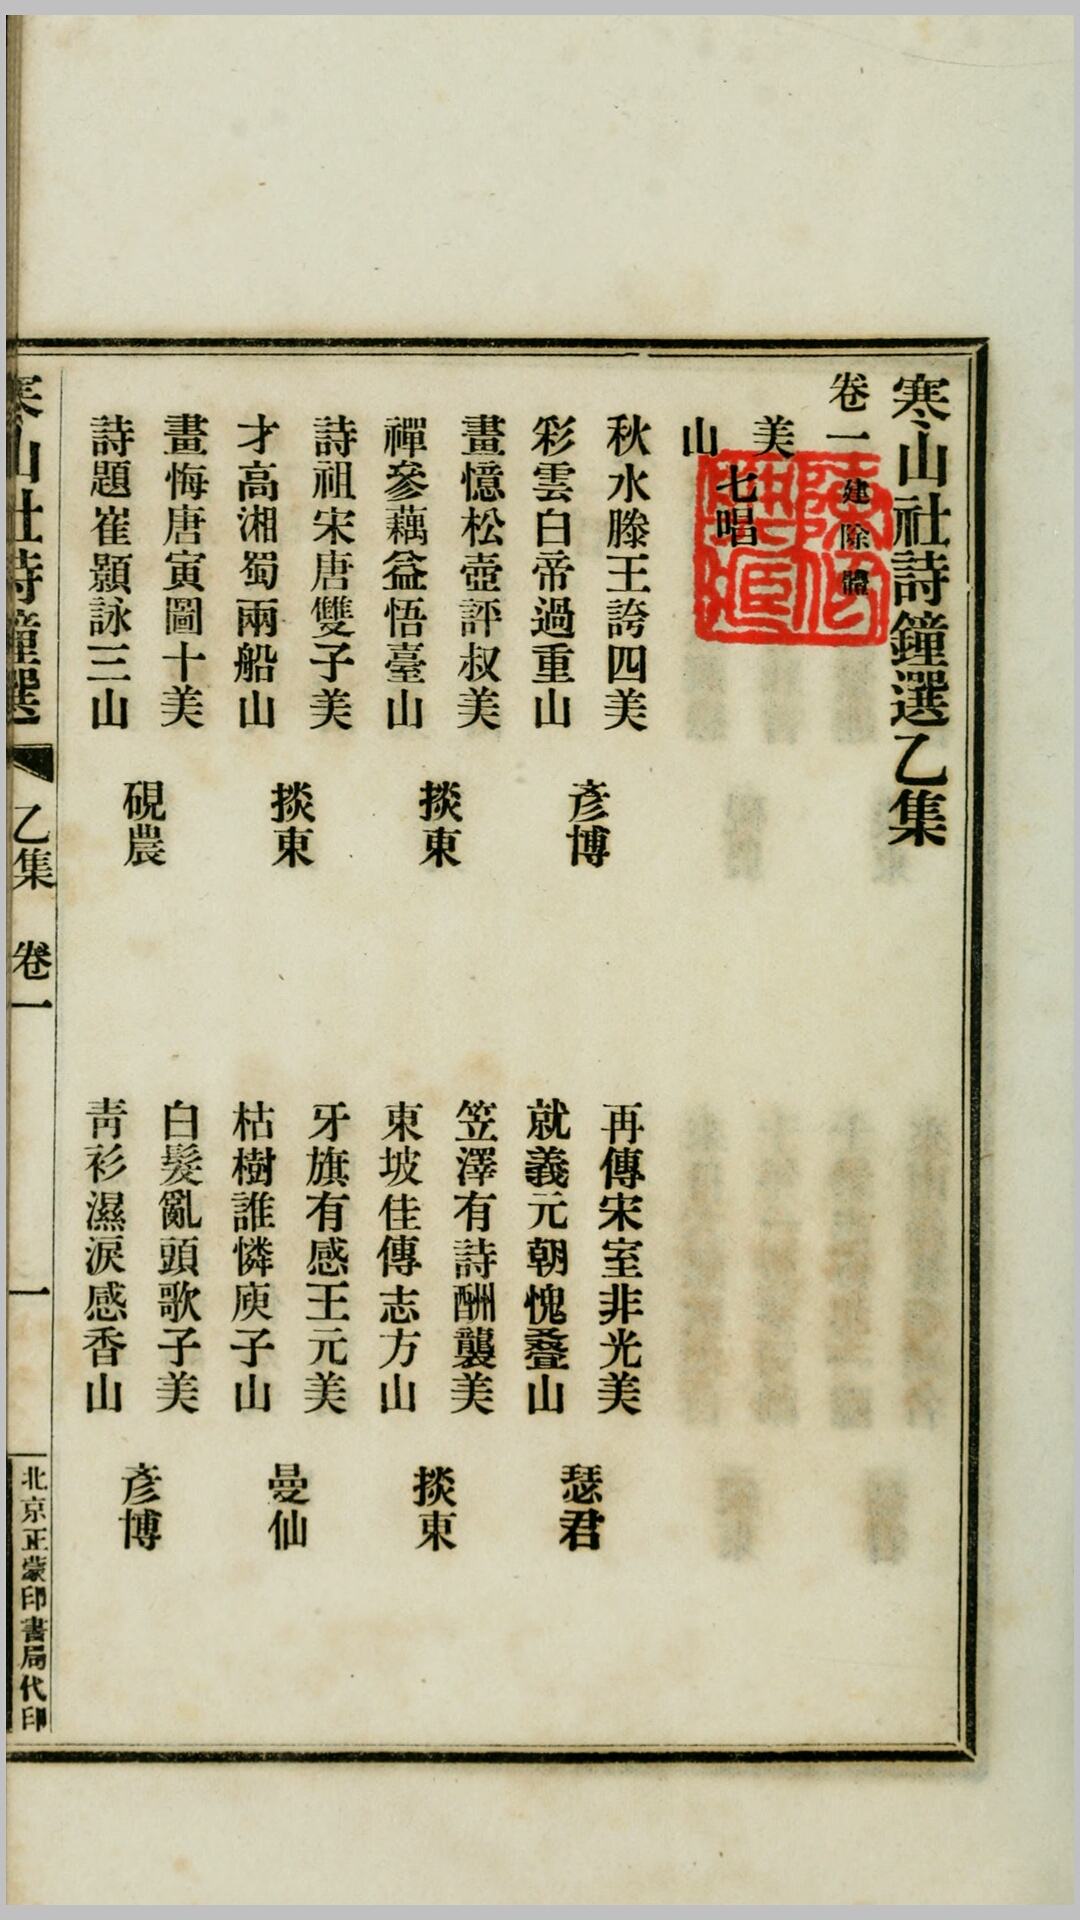 寒山社詩鐘選乙集
卷一 建除體
美
山 七唱
秋水滕王誇四美
彩雲白帝過重山
彥博
再傳宋室非光美
就義元朝愧叠山
瑟君
畫憶松壺評叔美
禪參藕益悟臺山
掞東
笠澤有詩酬襲美
東坡佳傳志方山
掞東
詩祖宋唐雙子美
才高湘蜀兩船山
掞東
牙旗有感王元美
枯樹誰憐庾子山
曼仙
畫悔唐寅圖十美
詩題崔顥詠三山
硯農
白髮亂頭歌子美
靑衫濕淚感香山
彥博
寒山社詩鐘選 乙集 卷一 一 北京正蒙印書局代印